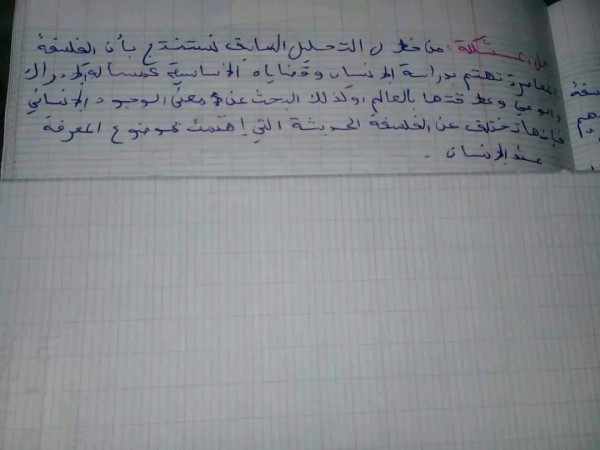 حل المشكلة: من خلال التحليل السابق نستنتج بأن الفلسفة
المعاصرة تهتم بدراسة الإنسان وقضاياه الإنسانية كمسألة الإدراك
والوعي وعلاقتها بالعالم، وكذلك البحث عن معنى الوجود الإنساني
فإنها تختلف عن الفلسفة الحديثة التي إهتمت بموضوع المعرفة
عند الإنسان.
سفة
هم